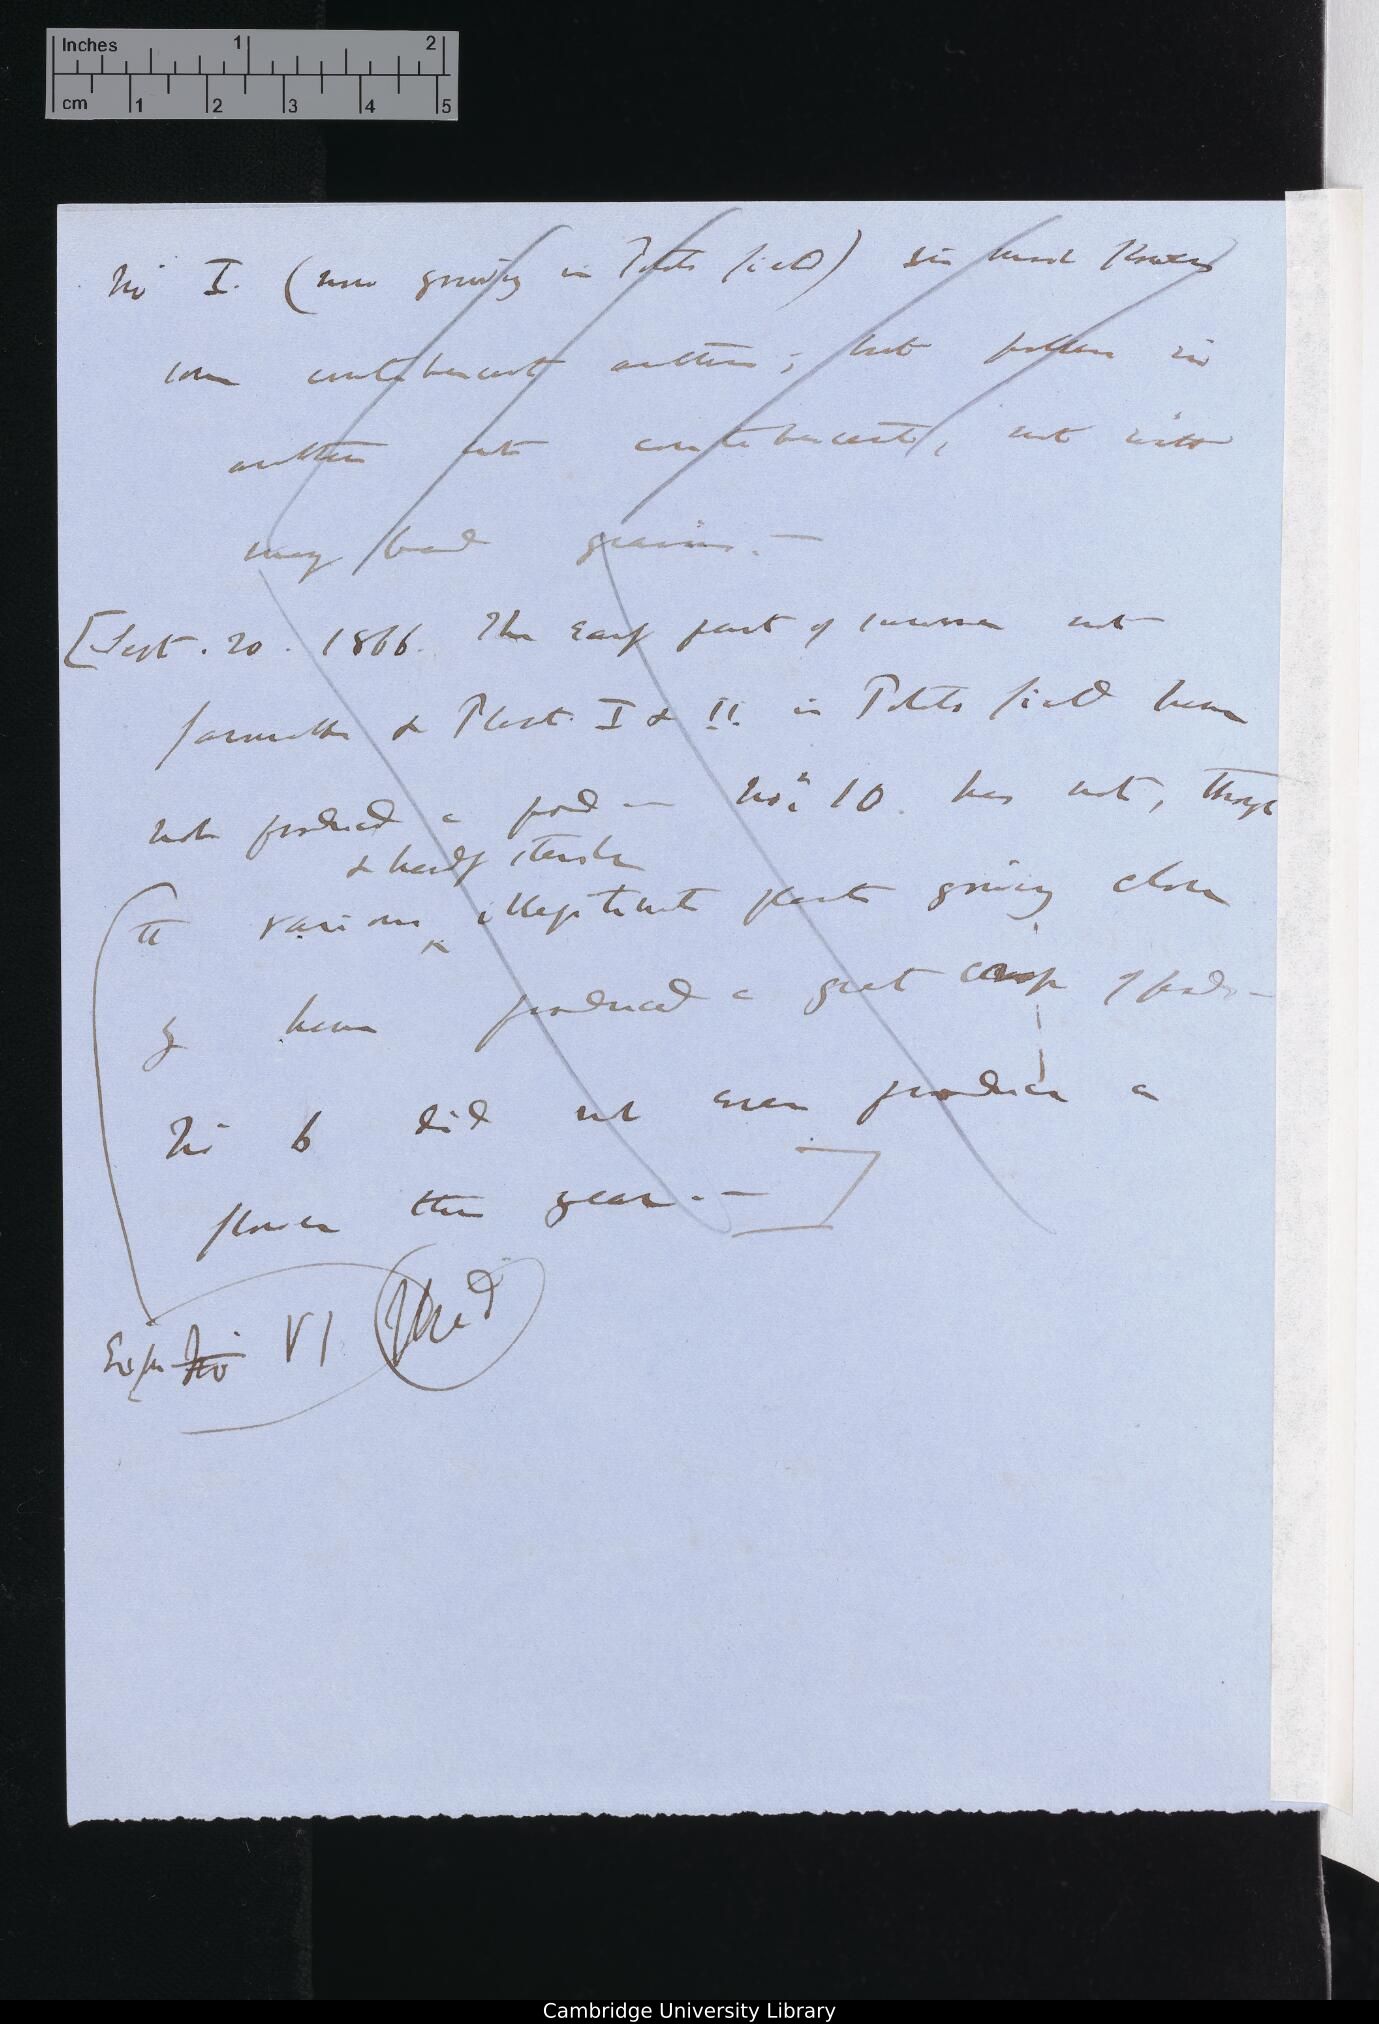 Inches 1 2
cm 1 2 3 4 5
No I. (now growing in Potato field) in much Flowers
some contabescent anthers; but pollen in
anthers not contabescent, not with
many bad grains. —
[Sept. 20. 1866. The early part of summer not
favourable & Plant I & II. in Potato field have
not produced a pod — No. 10. has not, though
& hardly sterile
the various illegitimate plants growing close
by have produced a great crop of pods —
No 6 did not even produce a
flower this year. — ]
Exp No VI Used
Cambridge University Library